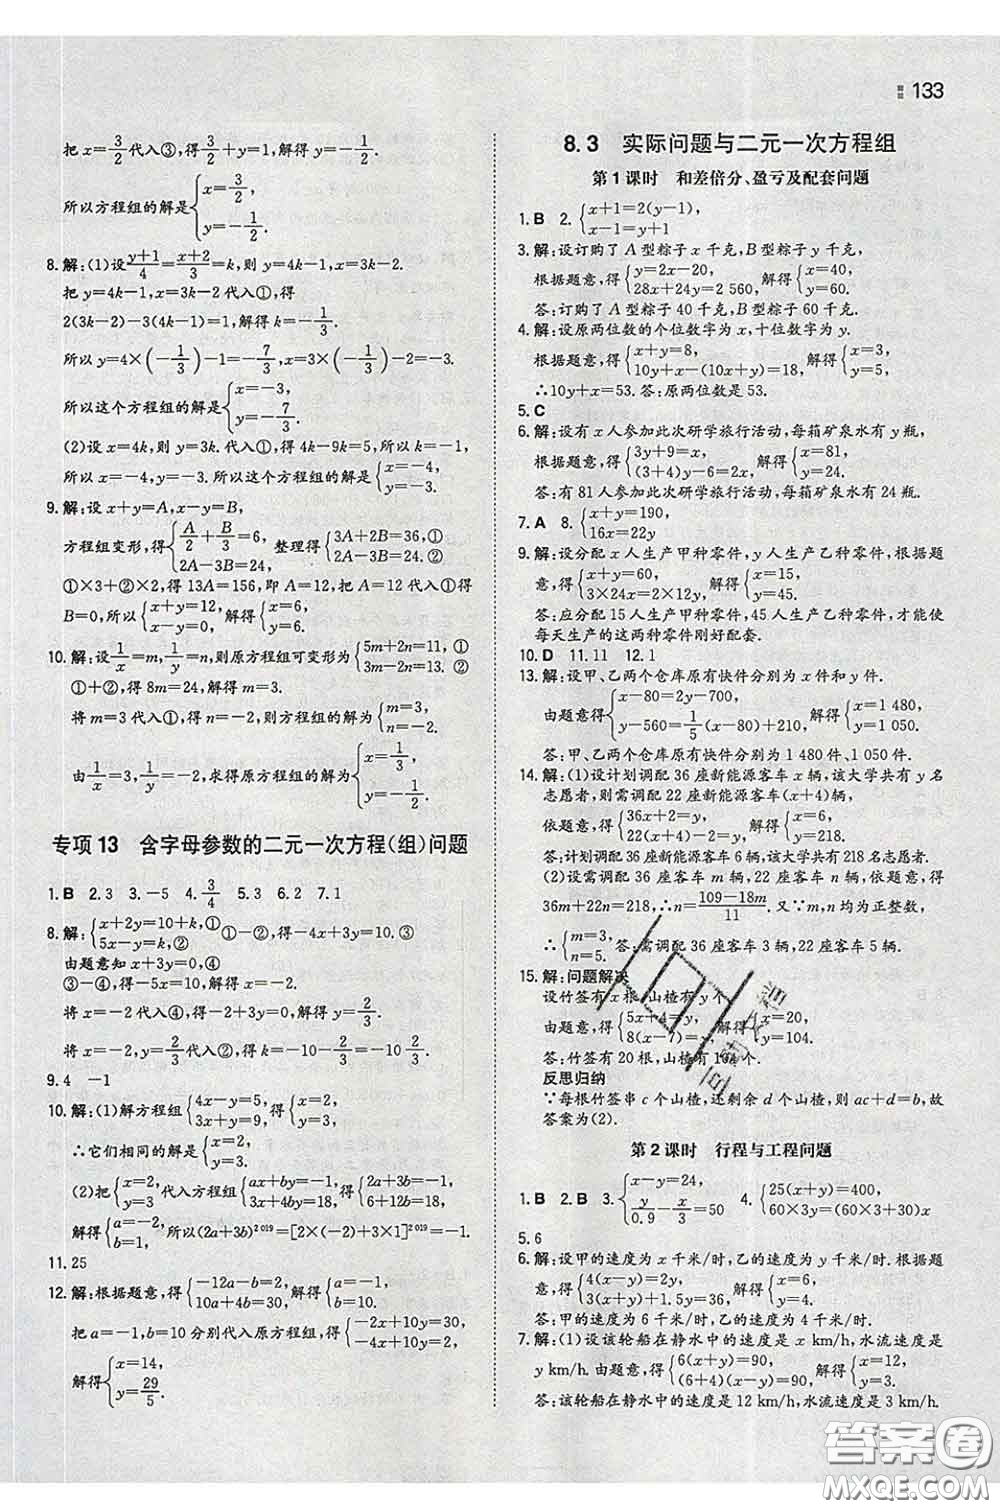 133
把 x=3/2 代入③,得 3/2+y=1,解得 y=-1/2.
所以方程组的解是{x=3/2, y=-1/2.
8.解:(1)设(y+1)/4=(x+2)/3=k,则 y=4k-1,x=3k-2.
把 y=4k-1,x=3k-2 代入①,得
2(3k-2)-3(4k-1)=1,解得 k=-1/3.
所以 y=4×(-1/3)-1=-7/3,x=3×(-1/3)-2=-3.
所以这个方程组的解是{x=-3, y=-7/3.
(2)设 x=4k,则 y=3k.代入①,得 4k-9k=5,所以 k=-1,
所以 x=-4,y=-3.所以这个方程组的解是{x=-4, y=-3.
9.解:设 x+y=A,x-y=B,
方程组变形,得{A/2+B/3=6, 2A-3B=24, 整理得{3A+2B=36,① 2A-3B=24.②
①×3+②×2,得 13A=156,即 A=12,把 A=12 代入①,得
B=0,所以{x+y=12, x-y=0, 解得{x=6, y=6.
10.解:设1/x=m,1/y=n,则原方程组可变形为{5m+2n=11,① 3m-2n=13.②
①+②,得 8m=24,解得 m=3.
将 m=3 代入①,得 n=-2,则方程组的解为{m=3, n=-2.
由1/x=3,1/y=-2,求得原方程组的解为{x=1/3, y=-1/2.
专项 13 含字母参数的二元一次方程(组)问题
1.B 2.3 3.-5 4.3/4 5.3 6.2 7.1
8.解:{x+2y=10+k,① 5x-y=k,② ①-②,得-4x+3y=10.③
由题意知 x+3y=0,④
③-④,得-5x=10,解得 x=-2.
将 x=-2 代入④,得-2+3y=0,解得 y=2/3.
将 x=-2,y=2/3代入②,得 k=-10-2/3=-32/3.
9.4 -1
10.解:(1)解方程组{4x-y=5, 3x+y=9, 得{x=2, y=3.
∴它们相同的解是{x=2, y=3.
(2)把{x=2, y=3, 代入方程组{ax+by=-1, 3x+4by=18, 得{2a+3b=-1, 6+12b=18,
解得{a=-2, b=1. 所以(2a+3b)²⁰¹⁹=[2×(-2)+3×1]²⁰¹⁹=-1.
11.25
12.解:根据题意,得{-12a-b=2, 10a+4b=30, 解得{a=-1, b=10.
把 a=-1,b=10 分别代入原方程组,得{-2x+10y=30, -4x+10y=2,
解得{x=14, y=29/5.
8.3 实际问题与二元一次方程组
第 1 课时 和差倍分、盈亏及配套问题
1.B 2.{x+1=2(y-1), x-1=y+1
3.解:设订购了 A 型粽子 x 千克,B 型粽子 y 千克,
根据题意,得{y=2x-20, 28x+24y=2 560, 解得{x=40, y=60.
答:订购了 A 型粽子 40 千克,B 型粽子 60 千克.
4.解:设原两位数的个位数字为 x,十位数字为 y.
根据题意,得{x+y=8, 10y+x-(10x+y)=18, 解得{x=3, y=5.
∴10y+x=53.答:原两位数是 53.
5.C
6.解:设有 x 人参加此次研学旅行活动,每箱矿泉水有 y 瓶,
根据题意,得{3y+9=x, (3+4)y-6=2x, 解得{x=81, y=24.
答:有 81 人参加此次研学旅行活动,每箱矿泉水有 24 瓶.
7.A 8.{x+y=190, 16x=22y
9.解:设分配 x 人生产甲种零件,y 人生产乙种零件,根据题
意,得{x+y=60, 3×24x=2×12y, 解得{x=15, y=45.
答:应分配 15 人生产甲种零件,45 人生产乙种零件,才能使
每天生产的这两种零件刚好配套.
10.D 11.11 12.1
13.解:设甲、乙两个仓库原有快件分别为 x 件和 y 件.
由题意得{x-80=2y-700, y-560=1/5(x-80)+210, 解得{x=1 480, y=1 050.
答:甲、乙两个仓库原有快件分别为 1 480 件、1 050 件.
14.解:(1)设计划调配 36 座新能源客车 x 辆,该大学共有 y 名
志愿者,则需调配 22 座新能源客车(x+4)辆,
依题意,得{36x+2=y, 22(x+4)-2=y, 解得{x=6, y=218.
答:计划调配 36 座新能源客车 6 辆,该大学共有 218 名志愿者.
(2)设需调配 36 座客车 m 辆,22 座客车 n 辆,依题意,得
36m+22n=218,∴n=(109-18m)/11.又∵m,n 均为正整数,
∴{m=3, n=5. 答:需调配 36 座客车 3 辆,22 座客车 5 辆.
15.解:问题解决
设竹签有 x 根,山楂有 y 个,
由题意,得{5x+4=y, 8(x-7)=y, 解得{x=20, y=104.
答:竹签有 20 根,山楂有 104 个.
反思归纳
∵每根竹签串 c 个山楂,还剩余 d 个山楂,则 ac+d=b,故
答案为(2).
第 2 课时 行程与工程问题
1.B 2.B 3.{x-y=24, y/0.9-x/3=50 4.{25(x+y)=400, 60×3y=(60×3+30)x
5.6
6.解:设甲的速度为 x 千米/时,乙的速度为 y 千米/时.根据题
意,得{4(x-y)=2y, 3(x+y)+1.5y=36, 解得{x=6, y=4.
答:甲的速度为 6 千米/时,乙的速度为 4 千米/时.
7.解:(1)设该轮船在静水中的速度是 x km/h,水流速度是
y km/h.由题意,得{6(x+y)=90, (6+4)(x-y)=90, 解得{x=12, y=3.
答:该轮船在静水中的速度是 12 km/h,水流速度是 3 km/h.
答案圈
MXQE.COM